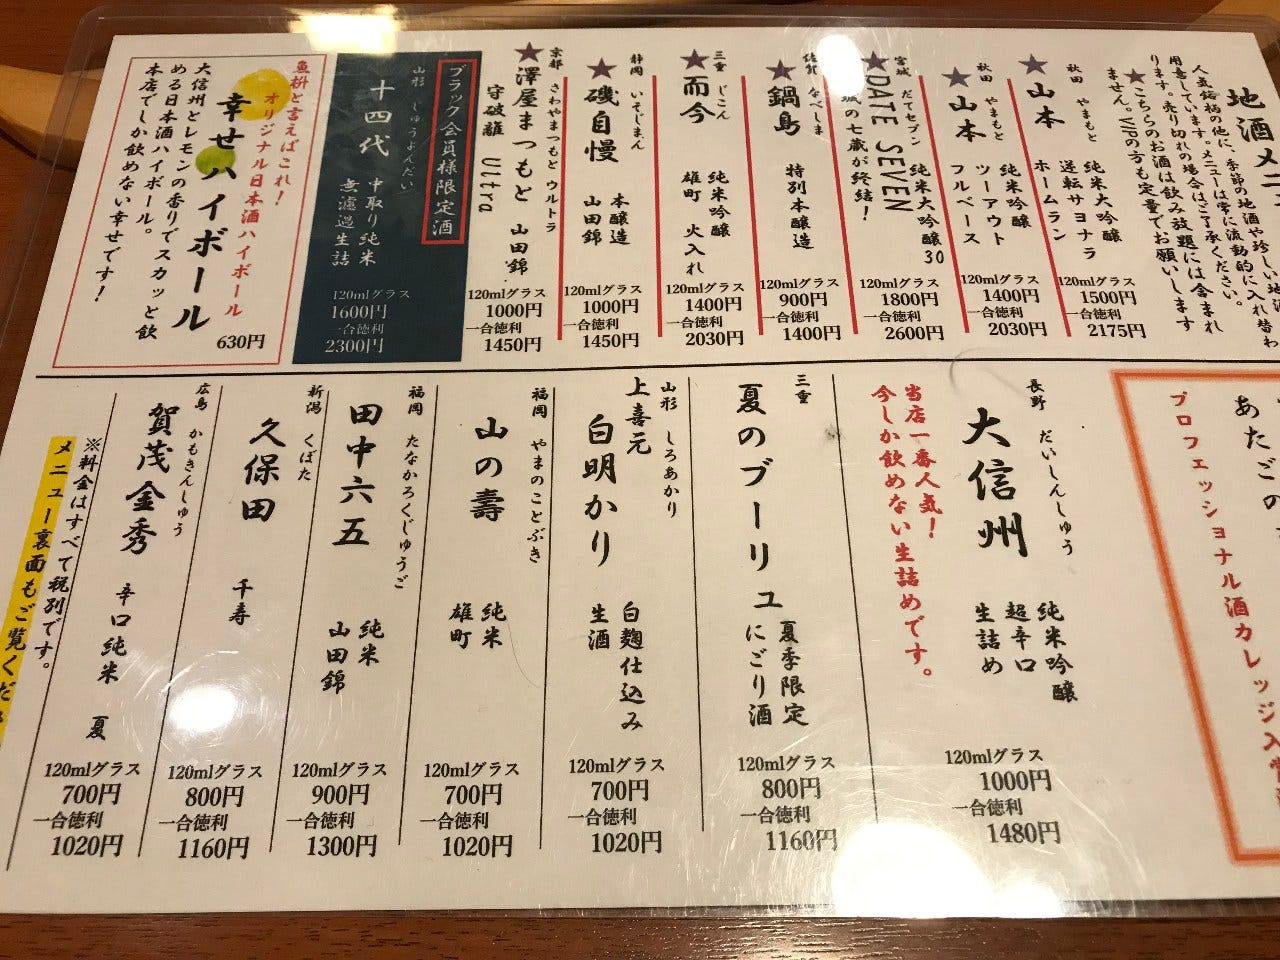 地酒メニュ
人気銘柄の他に、季節の地酒や珍しい地酒
用意しています。メニューは常に流動的に入れ替わ
ります。売り切れの場合はご了承ください。
★こちらのお酒は飲み放題には含まれ
ません。VIPの方も定量でお願いします
★山本
秋田 やまもと
純米大吟醸
逆転サヨナラ
ホームラン
120mlグラス
1500円
一合徳利
2175円
★山本
秋田 やまもと
純米吟醸
ツーアウト
フルベース
120mlグラス
1400円
一合徳利
2030円
★DATE SEVEN
宮城 だてセブン
純米大吟醸30
城の七蔵が終結!
120mlグラス
1800円
一合徳利
2600円
★鍋島
佐賀 なべしま
特別本醸造
120mlグラス
900円
一合徳利
1400円
★而今
三重 じこん
純米吟醸
雄町 火入れ
120mlグラス
1400円
一合徳利
2030円
★磯自慢
静岡 いそじまん
本醸造
山田錦
120mlグラス
1000円
一合徳利
1450円
★澤屋まつもと
京都 さわやまつもと ウルトラ
守破離 Ultra
山田錦
120mlグラス
1000円
一合徳利
1450円
ブラック会員様限定酒
山形 じゅうよんだい
十四代
中取り純米
無濾過生詰
120mlグラス
1600円
一合徳利
2300円
魚枡と言えばこれ!
オリジナル日本酒ハイボール
幸せハイボール
630円
大信州とレモンの香りでスカッと飲
める日本酒ハイボール。
本店でしか飲めない幸せです!
あたごの
プロフェッショナル酒カレッジ入
長野 だいしんしゅう
大信州
純米吟醸
超辛口
生詰め
当店一番人気!
今しか飲めない生詰めです。
120mlグラス
1000円
一合徳利
1480円
三重
夏のブーリュ
夏季限定
にごり酒
120mlグラス
800円
一合徳利
1160円
山形 しろあかり
上喜元
白明かり
白麹仕込み
生酒
120mlグラス
700円
一合徳利
1020円
福岡 やまのことぶき
山の壽
純米
雄町
120mlグラス
700円
一合徳利
1020円
福岡 たなかろくじゅうご
田中六五
純米
山田錦
120mlグラス
900円
一合徳利
1300円
新潟 くぼた
久保田
千寿
120mlグラス
800円
一合徳利
1160円
広島 かもきんしゅう
賀茂金秀
辛口純米 夏
120mlグラス
700円
一合徳利
1020円
※料金はすべて税別です。
メニュー裏面もご覧くださ